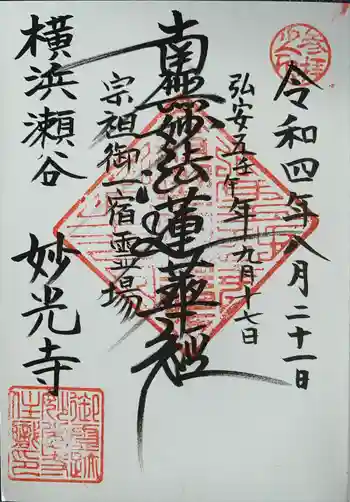 令和四年八月二十一日
弘安五壬午年九月十七日
南無妙法蓮華経
宗祖御一宿霊場
横浜瀬谷
妙光寺